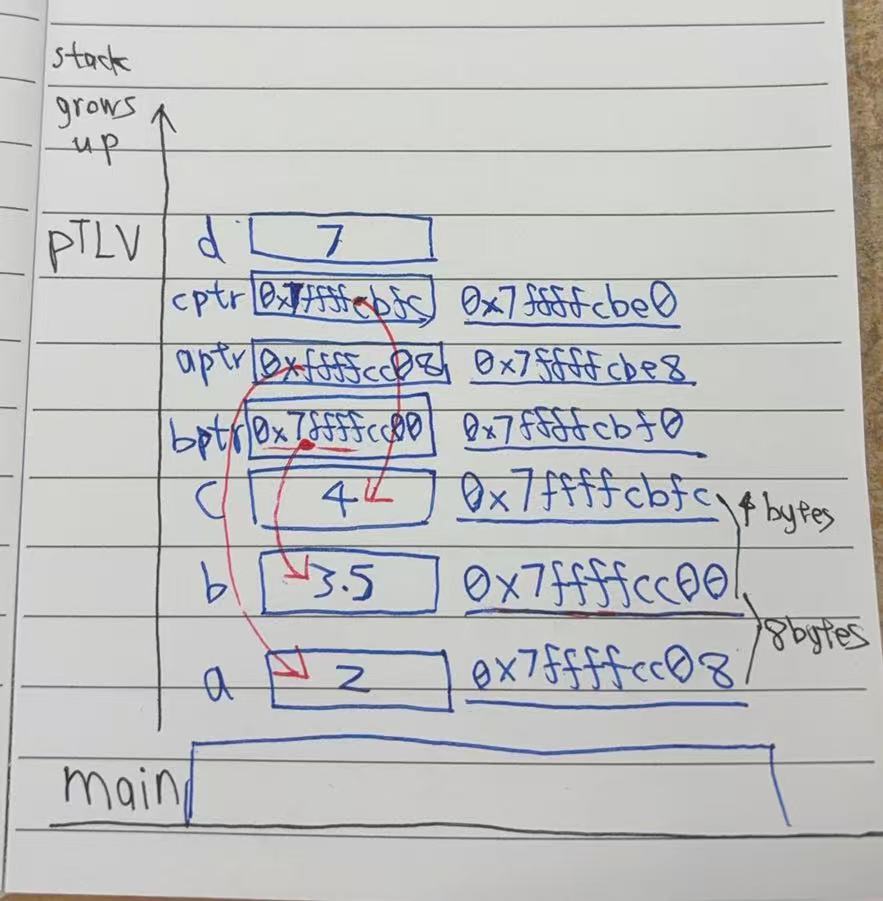 stack
grows
up
pTLV d 7
cptr 0x7ffffcbfc 0x7ffffcbe0
aptr 0xffffcc08 0x7ffffcbe8
bptr 0x7ffffcc00 0x7ffffcbf0
c 4 0x7ffffcbfc 4 bytes
b 3.5 0x7ffffcc00
8bytes
a 2 0x7ffffcc08
main